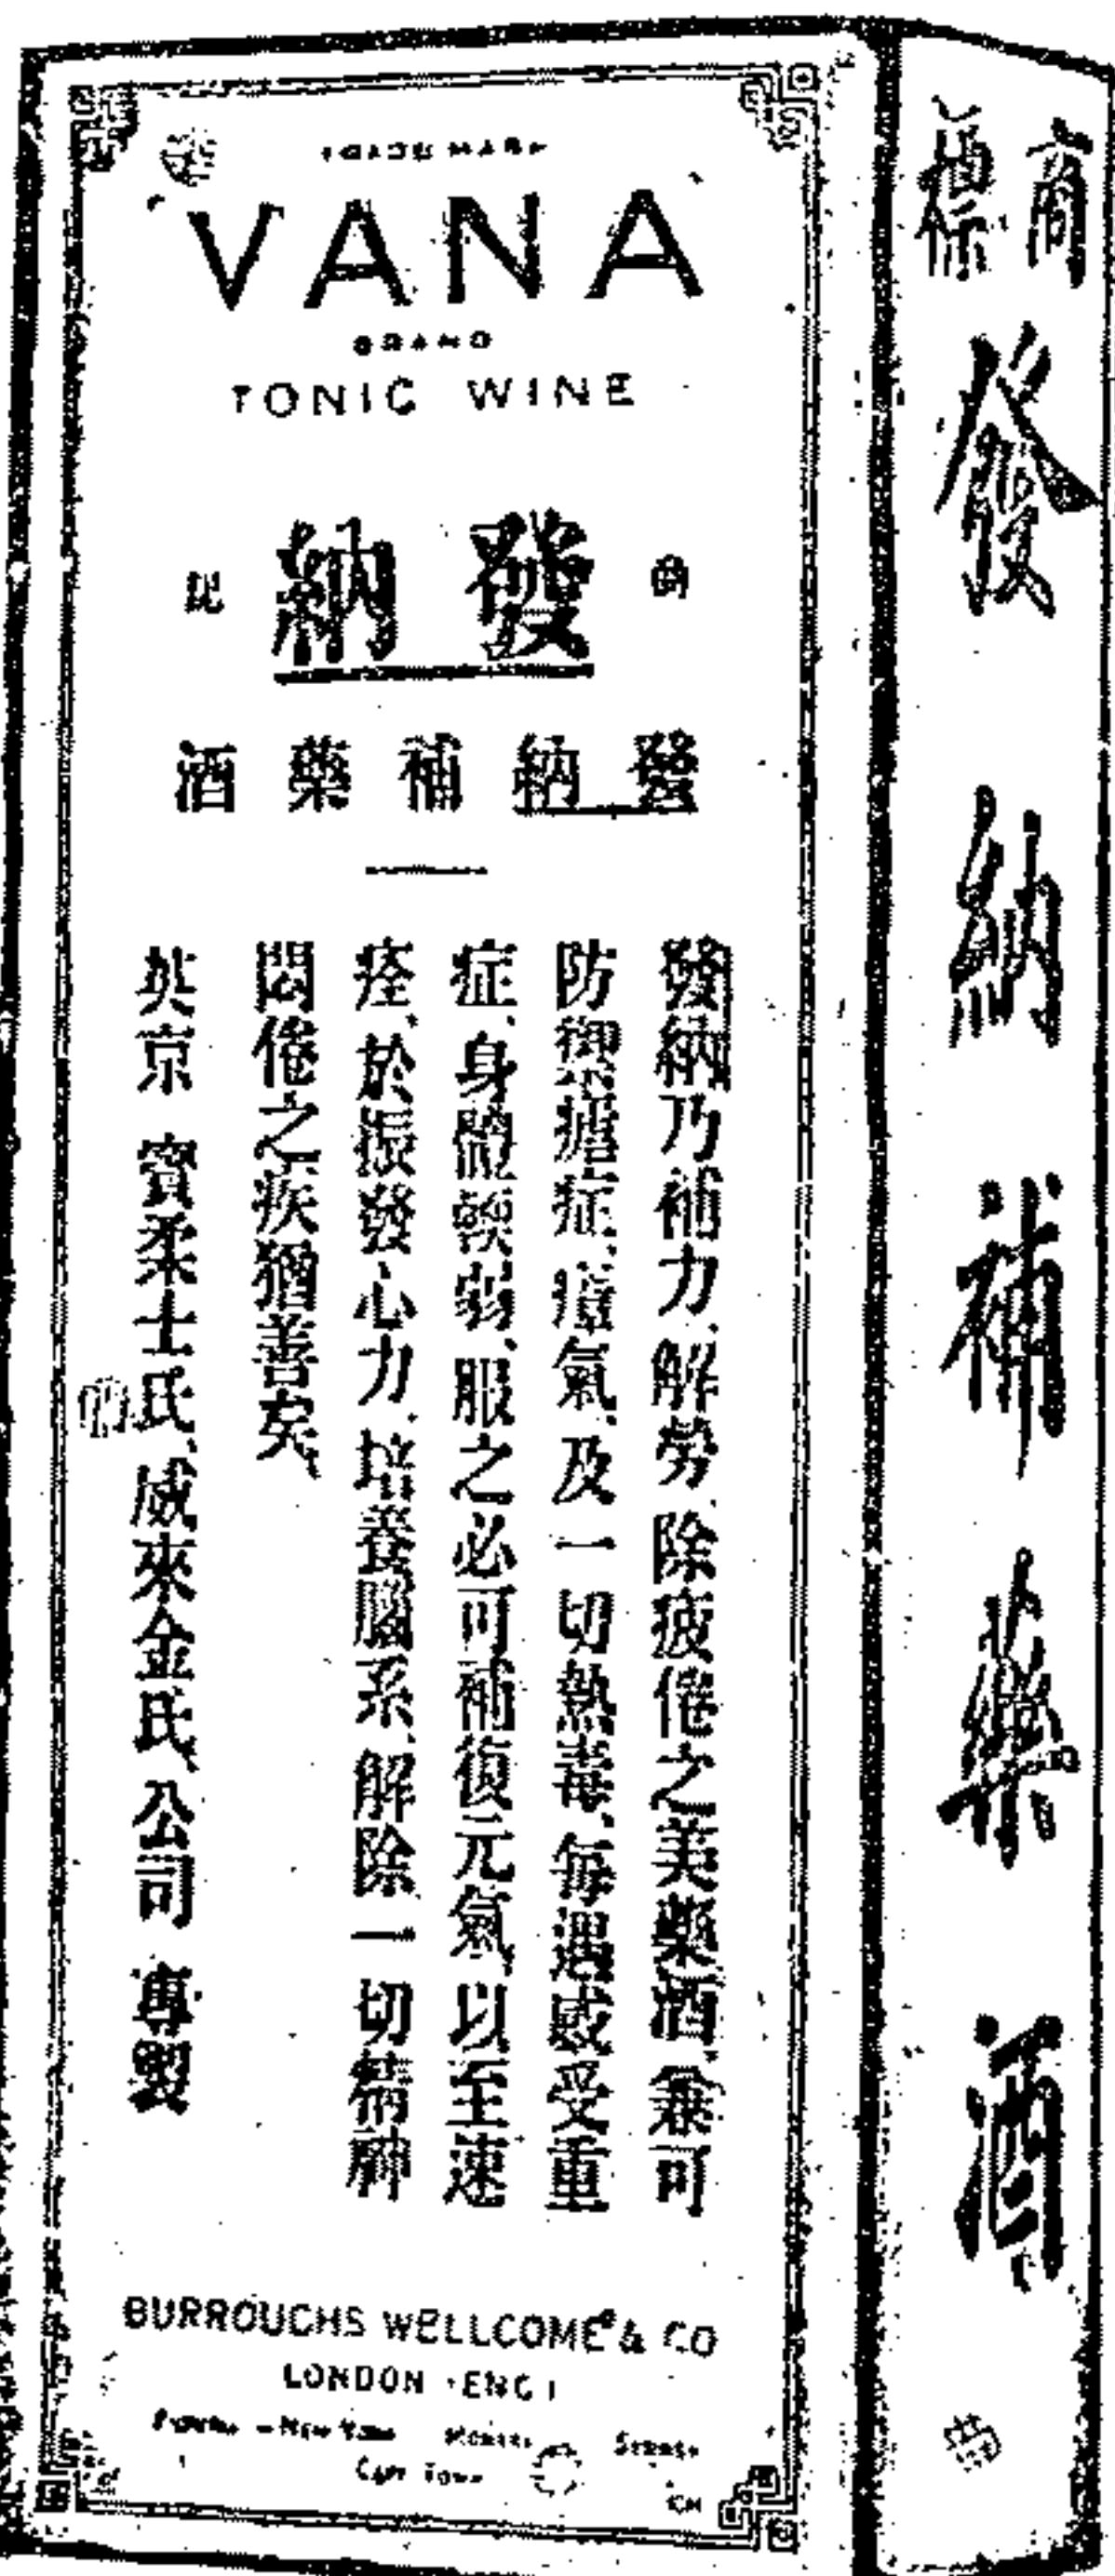 TRADE MARK
VANA
BRAND
TONIC WINE
商 發納 記
發納補藥酒
發納乃補力、解勞、除疲倦之美藥酒、兼可
防禦瘧症、瘴氣、及一切熱毒、每遇感受重
症、身體輭弱、服之必可補復元氣、以至速
痊、於振發心力、培養腦系、解除一切精神
悶倦之疾猶善矣、
英京 賓柔士氏、威來金氏、公司 專製
BURROUGHS WELLCOME & CO
LONDON ENG
NEW YORK MONTREAL SYDNEY
CAPE TOWN
商標
發納補藥酒